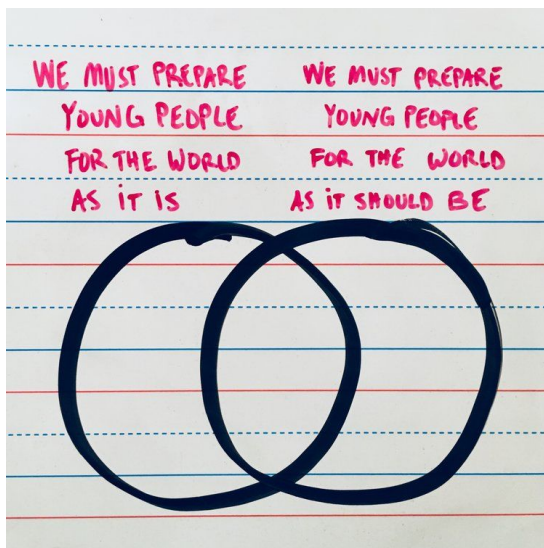 WE MUST PREPARE
YOUNG PEOPLE
FOR THE WORLD
AS iT iS
WE MUST PREPARE
YOUNG PEOPLE
FOR THE WORLD
AS iT SHOULD BE